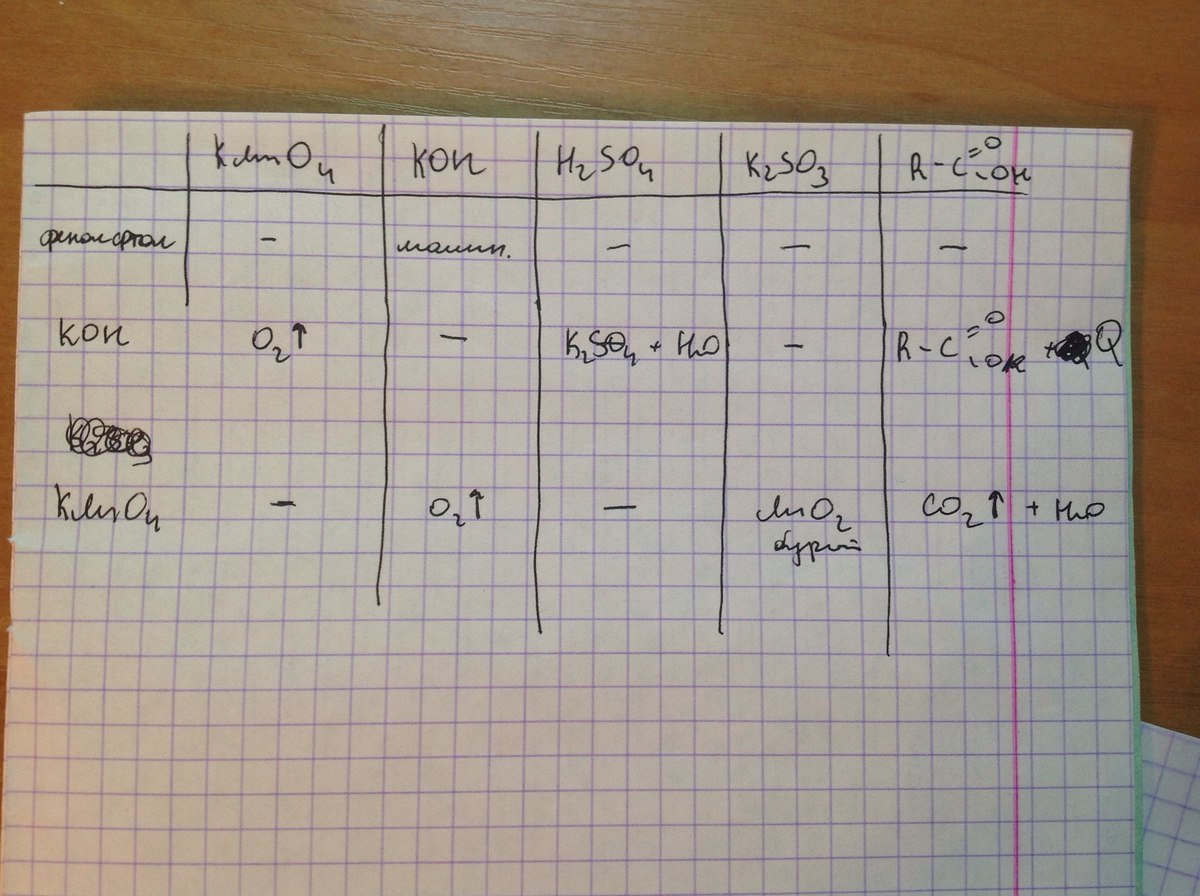 KMnO4 KOH H2SO4 K2SO3 R-C=O-OH
фенолфтал — малин. — — —
KOH O2↑ — K2SO4 + H2O — R-C=O-OK + Q
KMnO4 — O2↑ — MnO2 CO2↑ + H2O
бурый